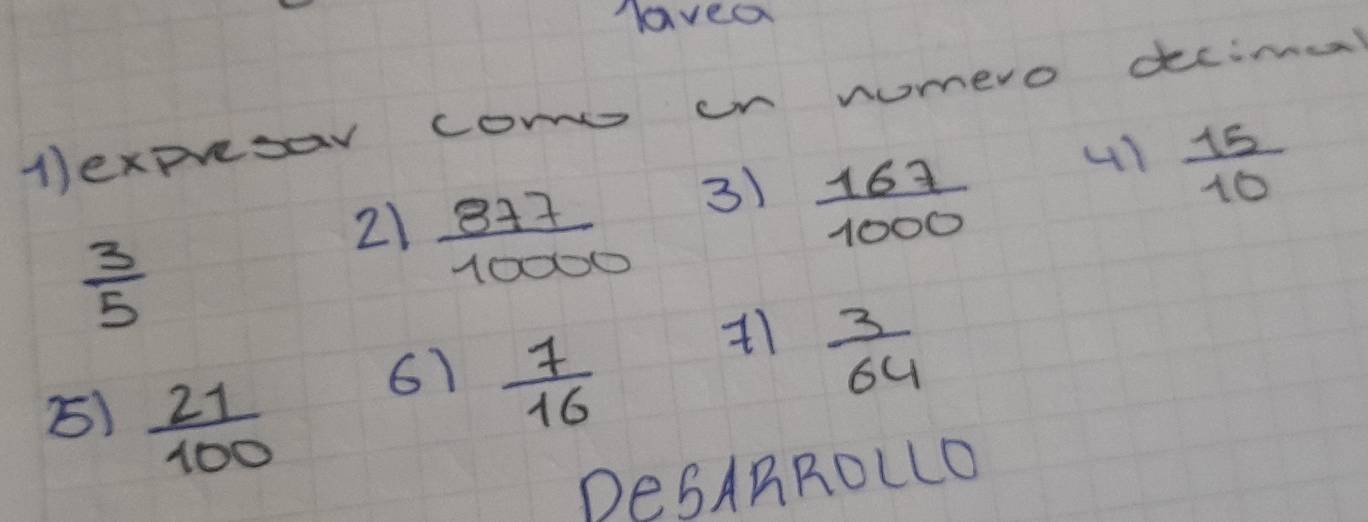 Tarea
1) expresar como un numero decimal
3/5 2) 877/10000 3) 167/1000 4) 15/10
5) 21/100 6) 7/16 7) 3/64
DESARROLLO